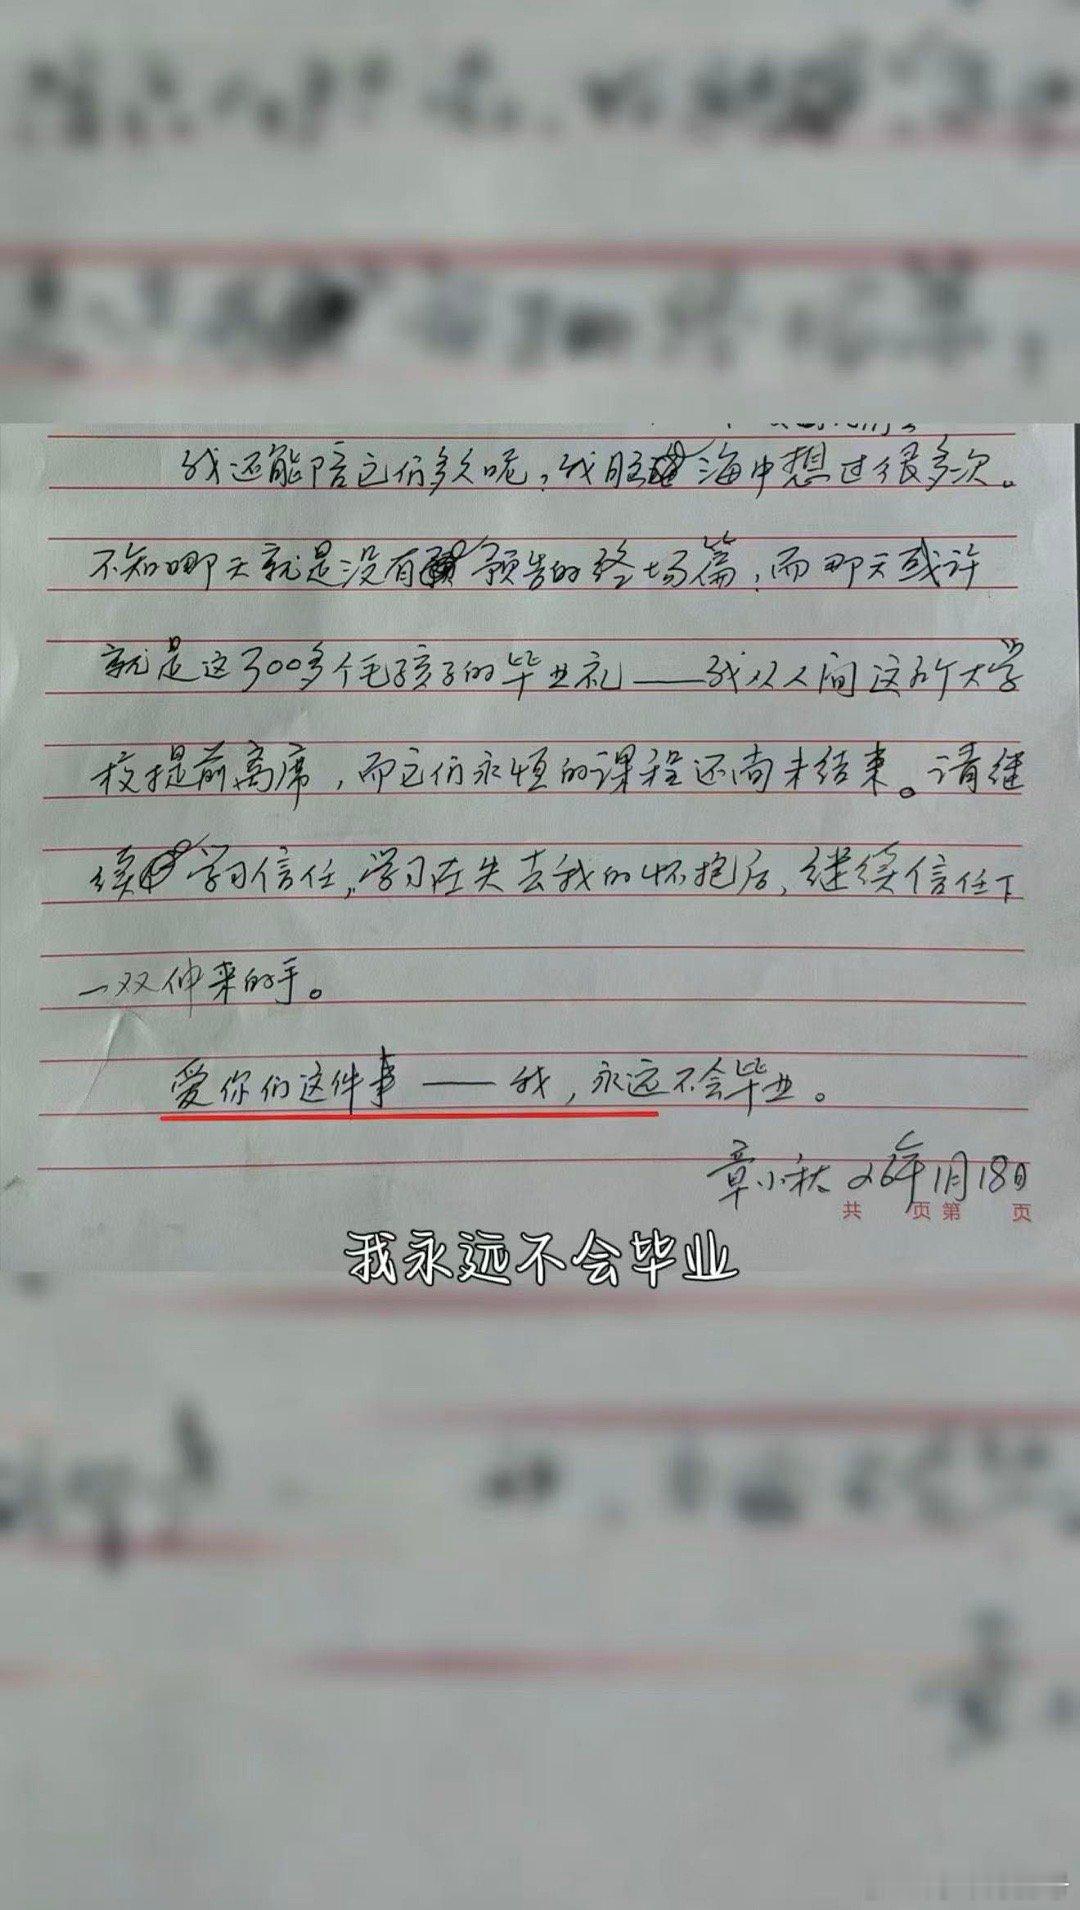 我还能陪它们多久呢,我脑海中想过很多次。
不知哪天就是没有预告的终场篇,而那天或许
就是这300多个毛孩子的毕业礼——我从人间这所大学
校提前离席,而它们永恒的课程还尚未结束。请继
续学习信任,学习在失去我的怀抱后,继续信任下
一双伸来的手。
爱你们这件事——我,永远不会毕业。
章小秋 26年1月18日
共 页 第 页
我永远不会毕业